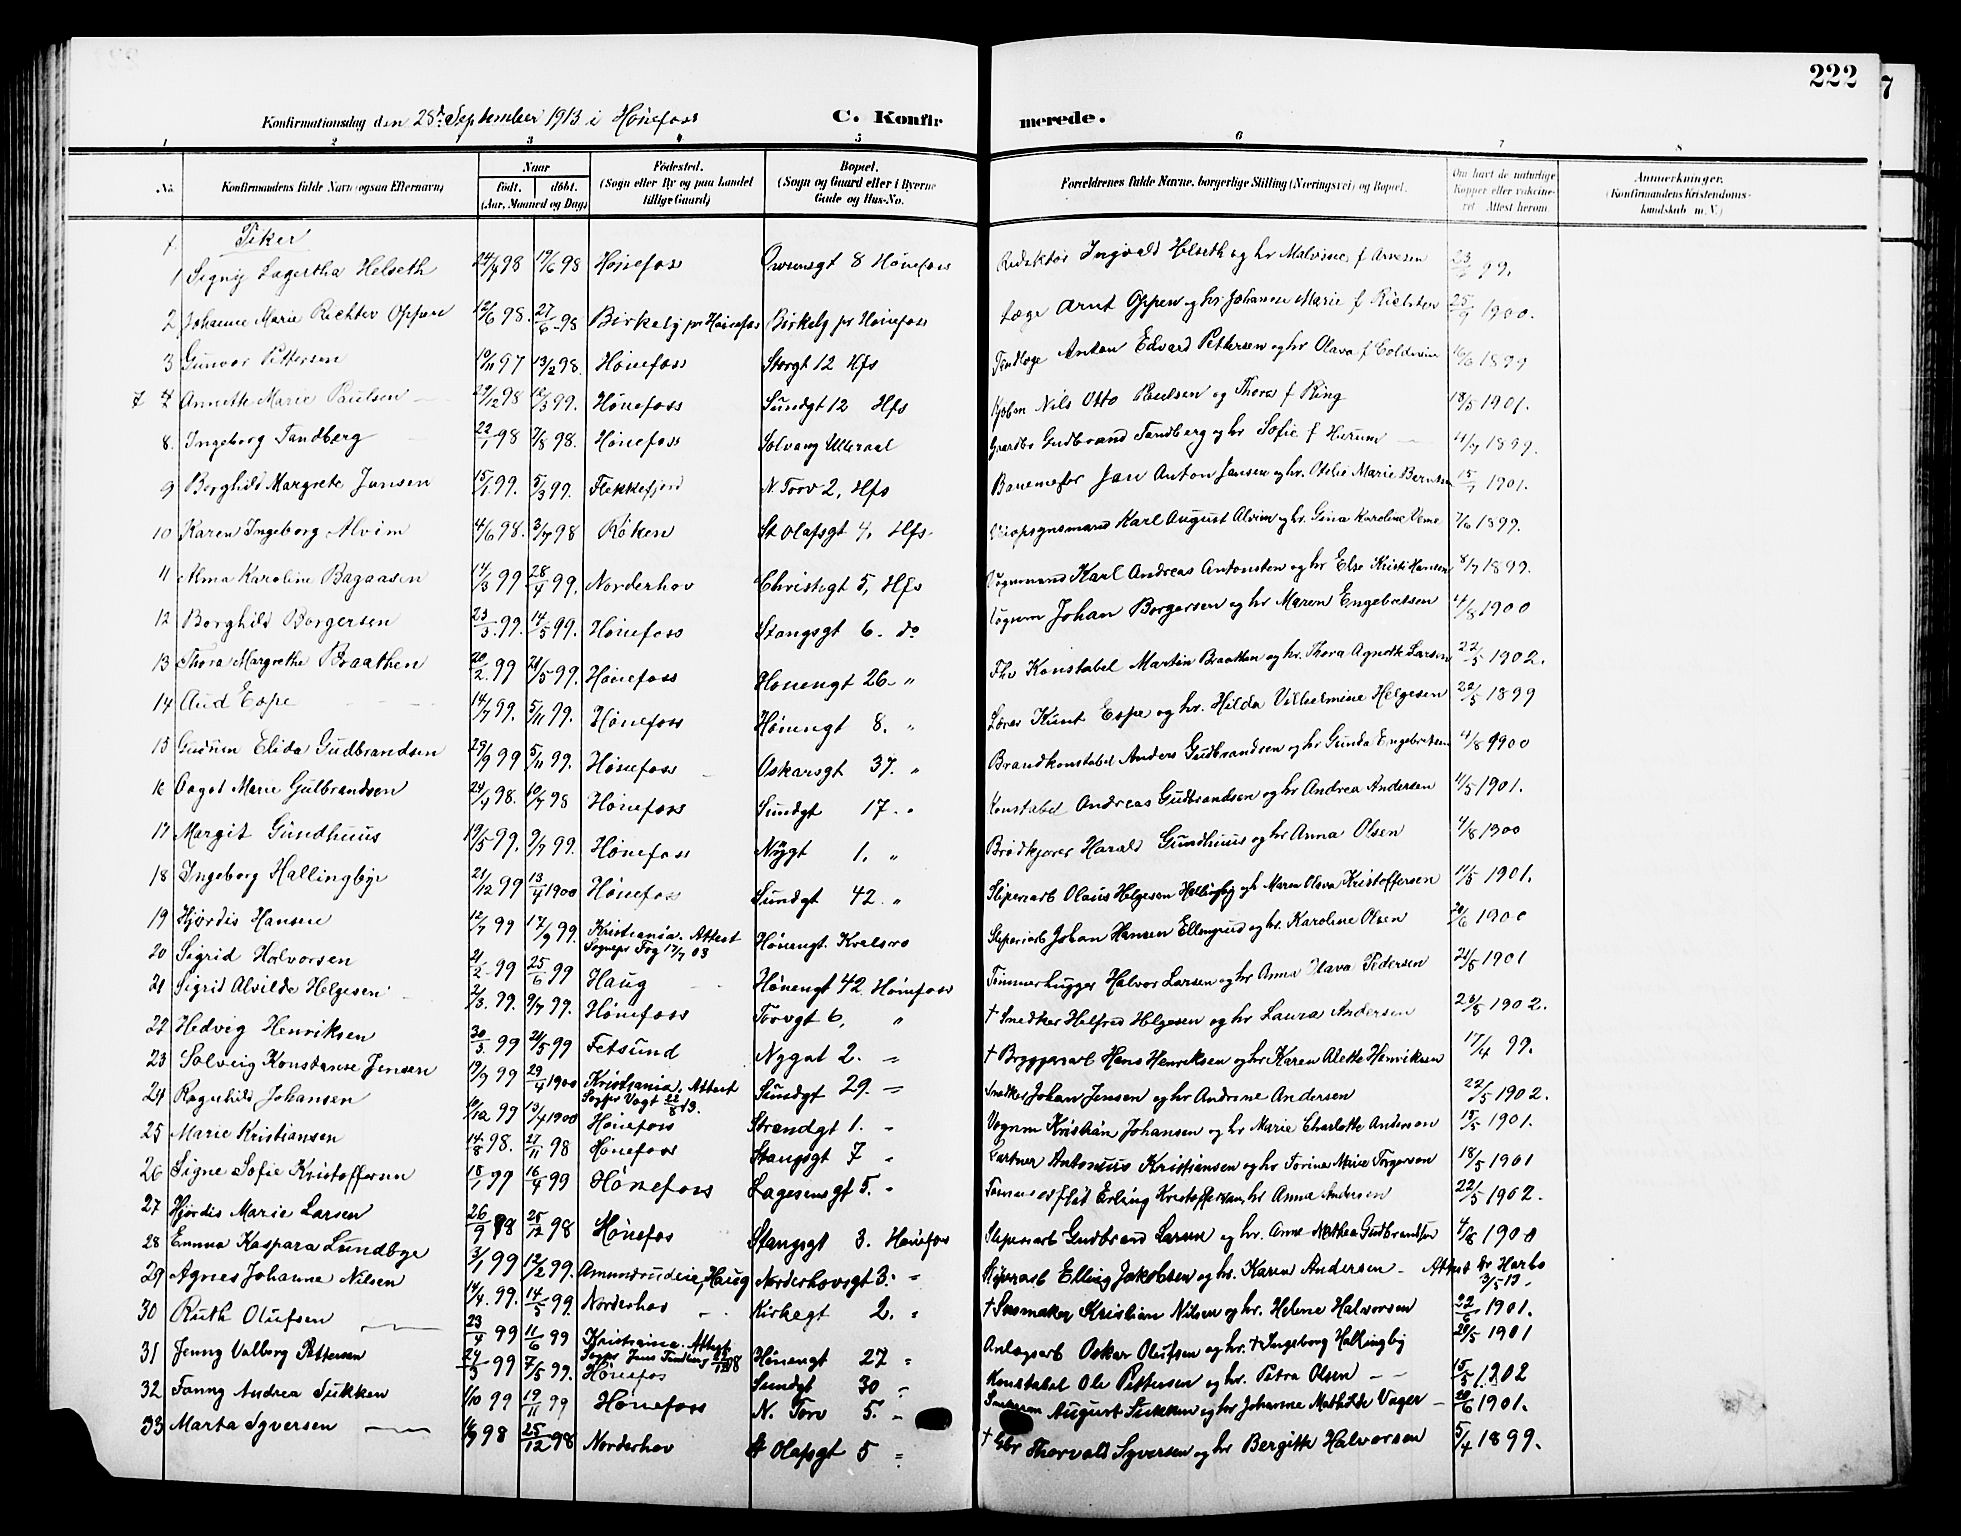 222
Konfirmationsdag den 28de September 1913 i Hønefoss C. Konfirmerede.
1 2 3 4 5 6 7 8
No. Konfirmandens fulde Navn (ogsaa Efternavn) Naar født. døbt. (Aar, Maaned og Dag) Fødested. (Sogn eller By og paa Landet tillige Gaard) Bopæl. (Sogn og Gaard eller i Byerne Gade og Hus-No. Forældrenes fulde Navne, borgerlige Stilling (Næringsvei) og Bopæl. Om havt de naturlige Kopper eller vaccineret. Attest herom. Anmerkninger. (Konfirmandens Kristendomskundskab m. V.)
Piker
1 Signy Lagertha Helseth 24/4 98 19/6 98 Hønefoss Owensgt 8 Hønefoss Redaktør Ingvald Helseth og hr Malvine f Arnesen 23/ 99.
2 Johanne Marie Richter Oppen 12/6 98. 27/6 98 Birkely pr Hønefos Birkely pr Hønefoss Læge Arnt Oppen og hr Johanne Marie f Richter 25/9 1900.
3 Gunvor Pettersen 10/11 97 13/2 98. Hønefoss Storgt 12 Hfs Tandlæge Anton Edvard Pettersen og hr Olava f 16/6 1899
7 4 Annette Marie Paulsen 29/12 98 12/3 99. Hønefoss Sundgt 12 Hfs Kjøbm Nils Otto Paulsen og Thora f Ring 18/5 1901.
8. Ingeborg Tandberg 22/1 98 7/8 98. Hønefoss Solvang Ulleraal Gaardbr Gudbrand Tandberg og hr Sofie f Hurum 4/7 1899.
9 Borghild Margrete Jansen 15/1 99. 5/3 99. Flekkefjord N Torv 2, Hfs Banemester Jan Anton Jansen og hr. Otelie Marie Berntsen 15/7 1901.
10 Karen Ingeborg Alvim 4/6 98. 3/7 98 Røken St Olafsgt 4, Hfs. Opsynsmand Karl August Alvim og hr. Gina Karoline Veme 7/6 1899.
11 Alma Karoline Bagaasen 14/3 99 28/4 99. Norderhov Christiegt 5, Hfs Vognmand Karl Andreas Antonsen og hr Else Kristi Hansen 8/7 1899.
12 Borghild Borgersen 23/3. 99. 14/5 99. Hønefoss Stangsgt 6. do Vognm Johan Borgersen og hr Maren Engebretsen 4/8 1900
13 Thora Margrethe Braathen 20/2. 99 21/5 99. Hønefoss Hønengt 26. " Fhv Konstabel Martin Braathen og hr. Thora Agnethe Larsen 22/5 1902.
14 Aud Espe 14/7 99. 5/11 99. Hønefoss Hønengt 8. " Lærer Knut Espe og hr. Hilda Vilhelmine Helgesen 20/5 1899
15 Gudrun Elida Gudbrandsen 29/9 99 5/11 99. Hønefoss Oskarsgt 37. " Brandkonstabel Anders Gudbrandsen og hr Gunda Engebretsen 4/8 9900
16 Aagot Marie Gulbrandsen 24/4 98. 10/7 98 Hønefoss Sundgt 17. " Konstabel Andreas Gudbrandsen og hr Andrea Andersen 4/5 1901.
17 Margit Gundhuus 19/5 99. 9/7 99. Hønefoss Nygt 1. " Brødkjører Harald Gundhuus og hr Anna Olsen 4/8 1900
18 Ingeborg Hallingbye 21/12 99 13/4 1900 Hønefoss Sundgt 42. " Sliperiarb Olaus Helgesen Hallingby og hr Maren Olava Kristoffersen 11/5 1901.
19 Hjørdis Hansen 12/7 99 17/9 99. Kristiania. Attest Sognepr Fog 17/7 03 Hønengt Kvelsro Sliperiarb Johan Hansen Ellengrud og hr. Karoline Olsen 20/6 1900
20 Sigrid Halvorsen 21/2 99 25/6 99 Haug Hønengt 42. Hønefoss Tømmerhugger Halvor Larsen og hr Anna Olava Pedersen 21/5 1901
21 Sigrid Alvilde Helgesen 21/3. 99. 9/7 99. Hønefoss Torvgt 6, " † Snedker Helfred Helgesen og hr Laura Andersen 23/5 1902.
22 Hedvig Henriksen 30/3. 99 21/5 99 Fetsund Nygat 2. " † Bryggeriarb Hans Henriksen og hr Karen Alette Henriksen 17/4 99.
23 Solveig Konstanse Jensen 19/9 99 29/4 1900 Kristiania. Attest Sogpr Vogt 22/8 13. Sundgt 29. " Snedker Johan Jensen og hr Andrine Andersen 22/5 1902.
24 Ragnhild Johansen 10/12 99 13/4 1900 Hønefoss Strandgt 1. " Vognm Kristian Johansen og hr Marie Charlotte Andersen 15/5 1901.
25 Marie Kristiansen 14/8 98. 27/11 98 Hønefoss Stangsgt 7 " Gartner Antonius Kristiansen og hr Torine Marie Torgersen 18/5 1901
26 Signe Sofie Kristoffersen 18/1 99 16/4 99 Hønefoss Lagesensgt 5. " Erling Kristoffersen, hr Anna Andersen 22/5 1902.
27 Hjørdis Marie Larsen 26/9 98 25/12 98 Hønefos Stangsgt 3. Hønefoss Sliperiarb Gudbrand Larsen og hr. Anne Mathea Gudbrandsen 4/8 1900
28 Emma Kaspara Lundbye 3/1 99 12/2 99. Amundrudeie, Haug Norderhovsgt 3. " Sliperarb Elling Jakobsen og hr. Karen Andersen Attest dr Harbo 3/5 13
29 Agnes Johanne Nilsen 14/4. 99. 14/5 99. Norderhov Kirkegt 2. " † Skomaker Kristian Nilsen og hr. Helene Halvorsen 22/6 1901.
30 Ruth Olufsen 23/4 99 11/6 99 Kristiania. Attest Sogpr Jens Tandberg Hønengt 27 " Anlægsarb Oskar Olufsen og hr. † Ingeborg Hallingby 20/5 1901
31 Jenny Valborg Pettersen 24/3 99 7/5 99. Hønefos Sundgt 30 " Konstabel Ole Pettersen og hr. Petra Olsen 15/5 1902
32 Fanny Andrea Sukken 1/10 99 19/11 99 Hønefoss N. Torv 5. " August Sukken og hr Johanne Mathilde Vager 20/6 1901.
33 Marta Syversen 16/9 98 25/12 98 Norderhov St Olafsgt 5 " † Gbr Thorvald Syversen og hr Bergitte Halvorsen 5/4 1899.